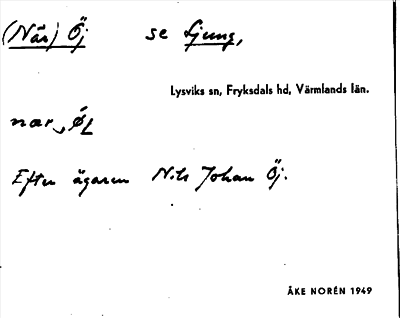 (När) Öj se Ljung,
Lysviks sn, Fryksdals hd, Värmlands län.
Efter ägaren Nils Johan Öj.
ÅKE NORÉN 1949